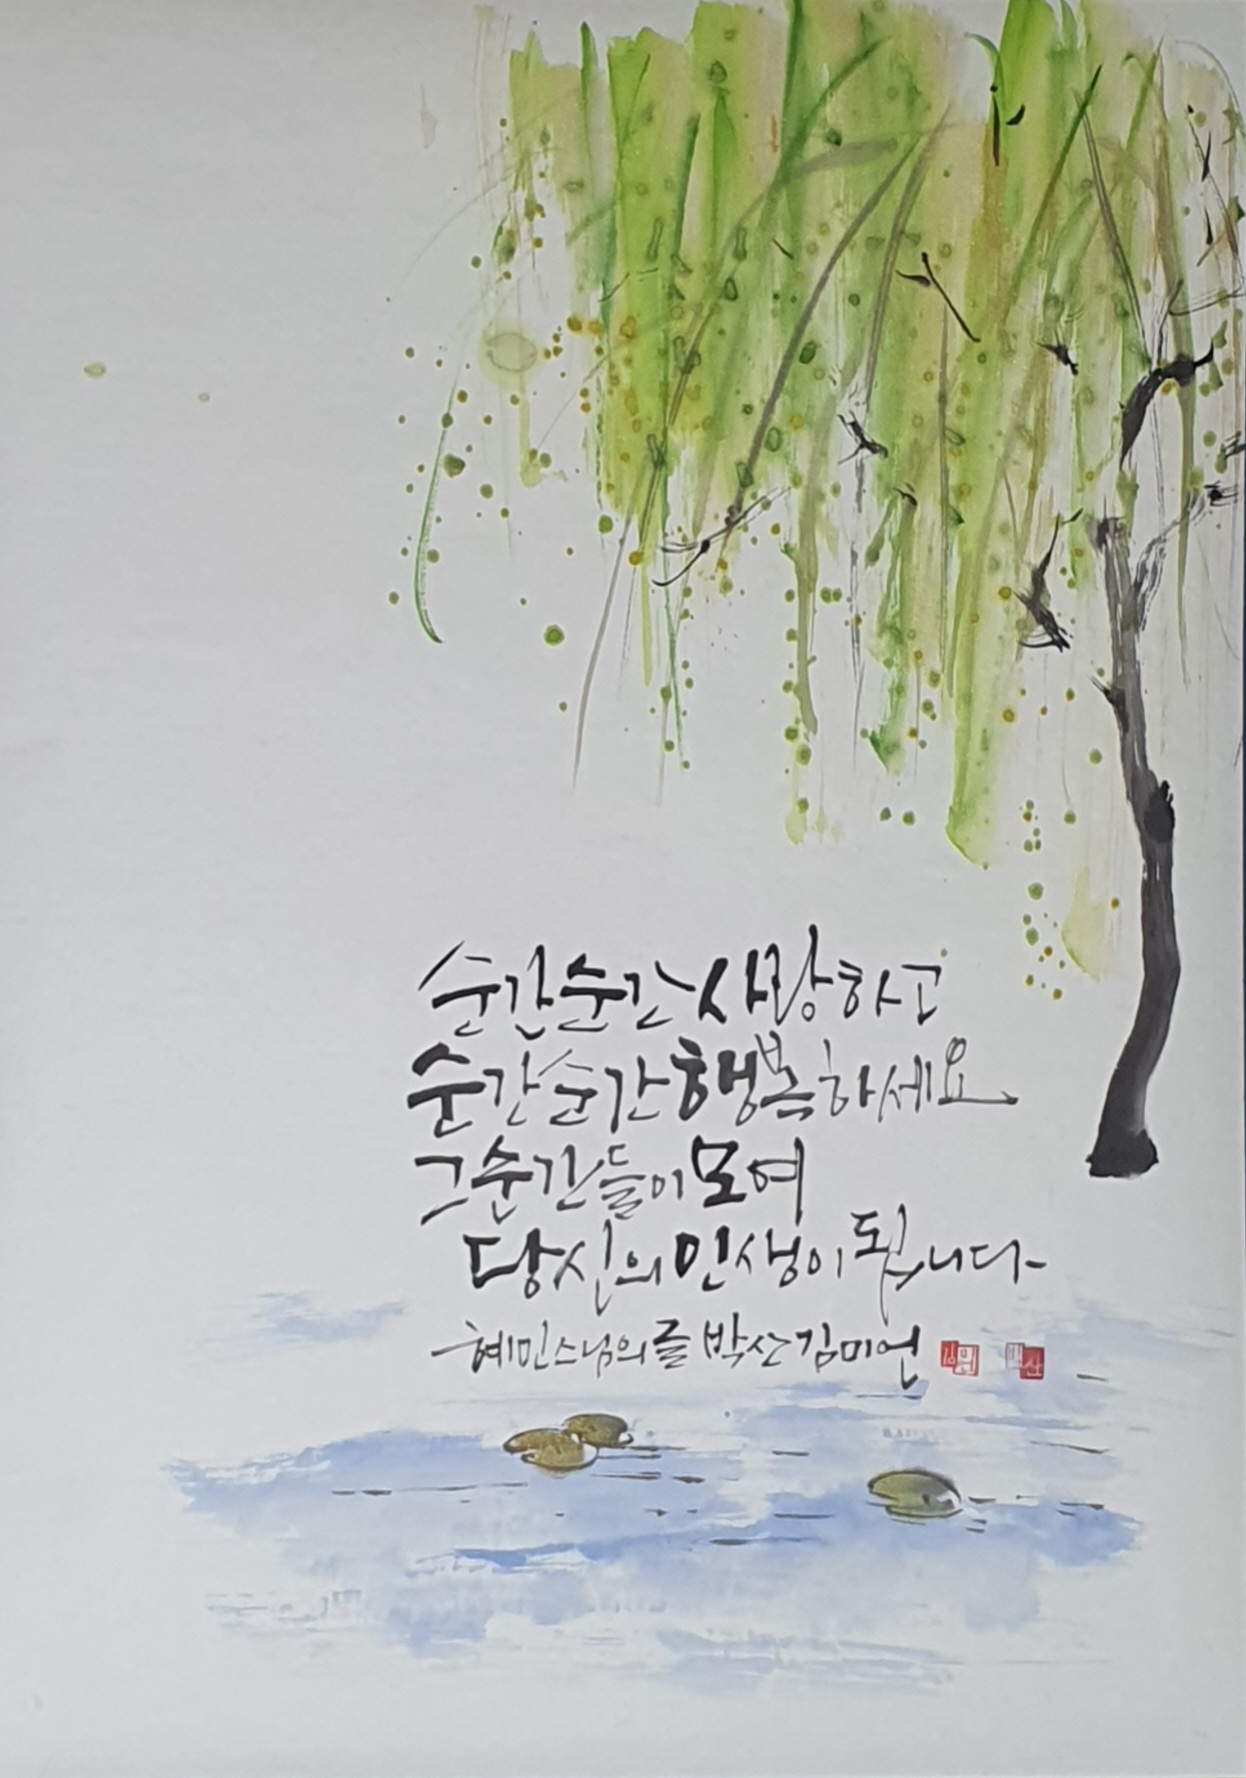 순간순간 사랑하고
순간순간 행복하세요
그 순간들이 모여
당신의 인생이 됩니다
혜민스님의 글 박산 김미언